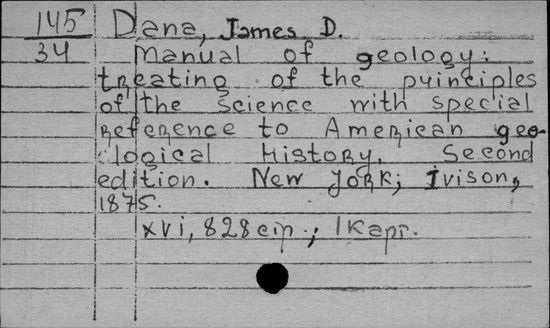 145 Dana, James D.
34 Manual of geology:
treating of the principles
of the science with special
reference to American geo-
logical history. Second
edition. New York; Ivison,
1875.
xvi, 828 стр.; 1 карт.